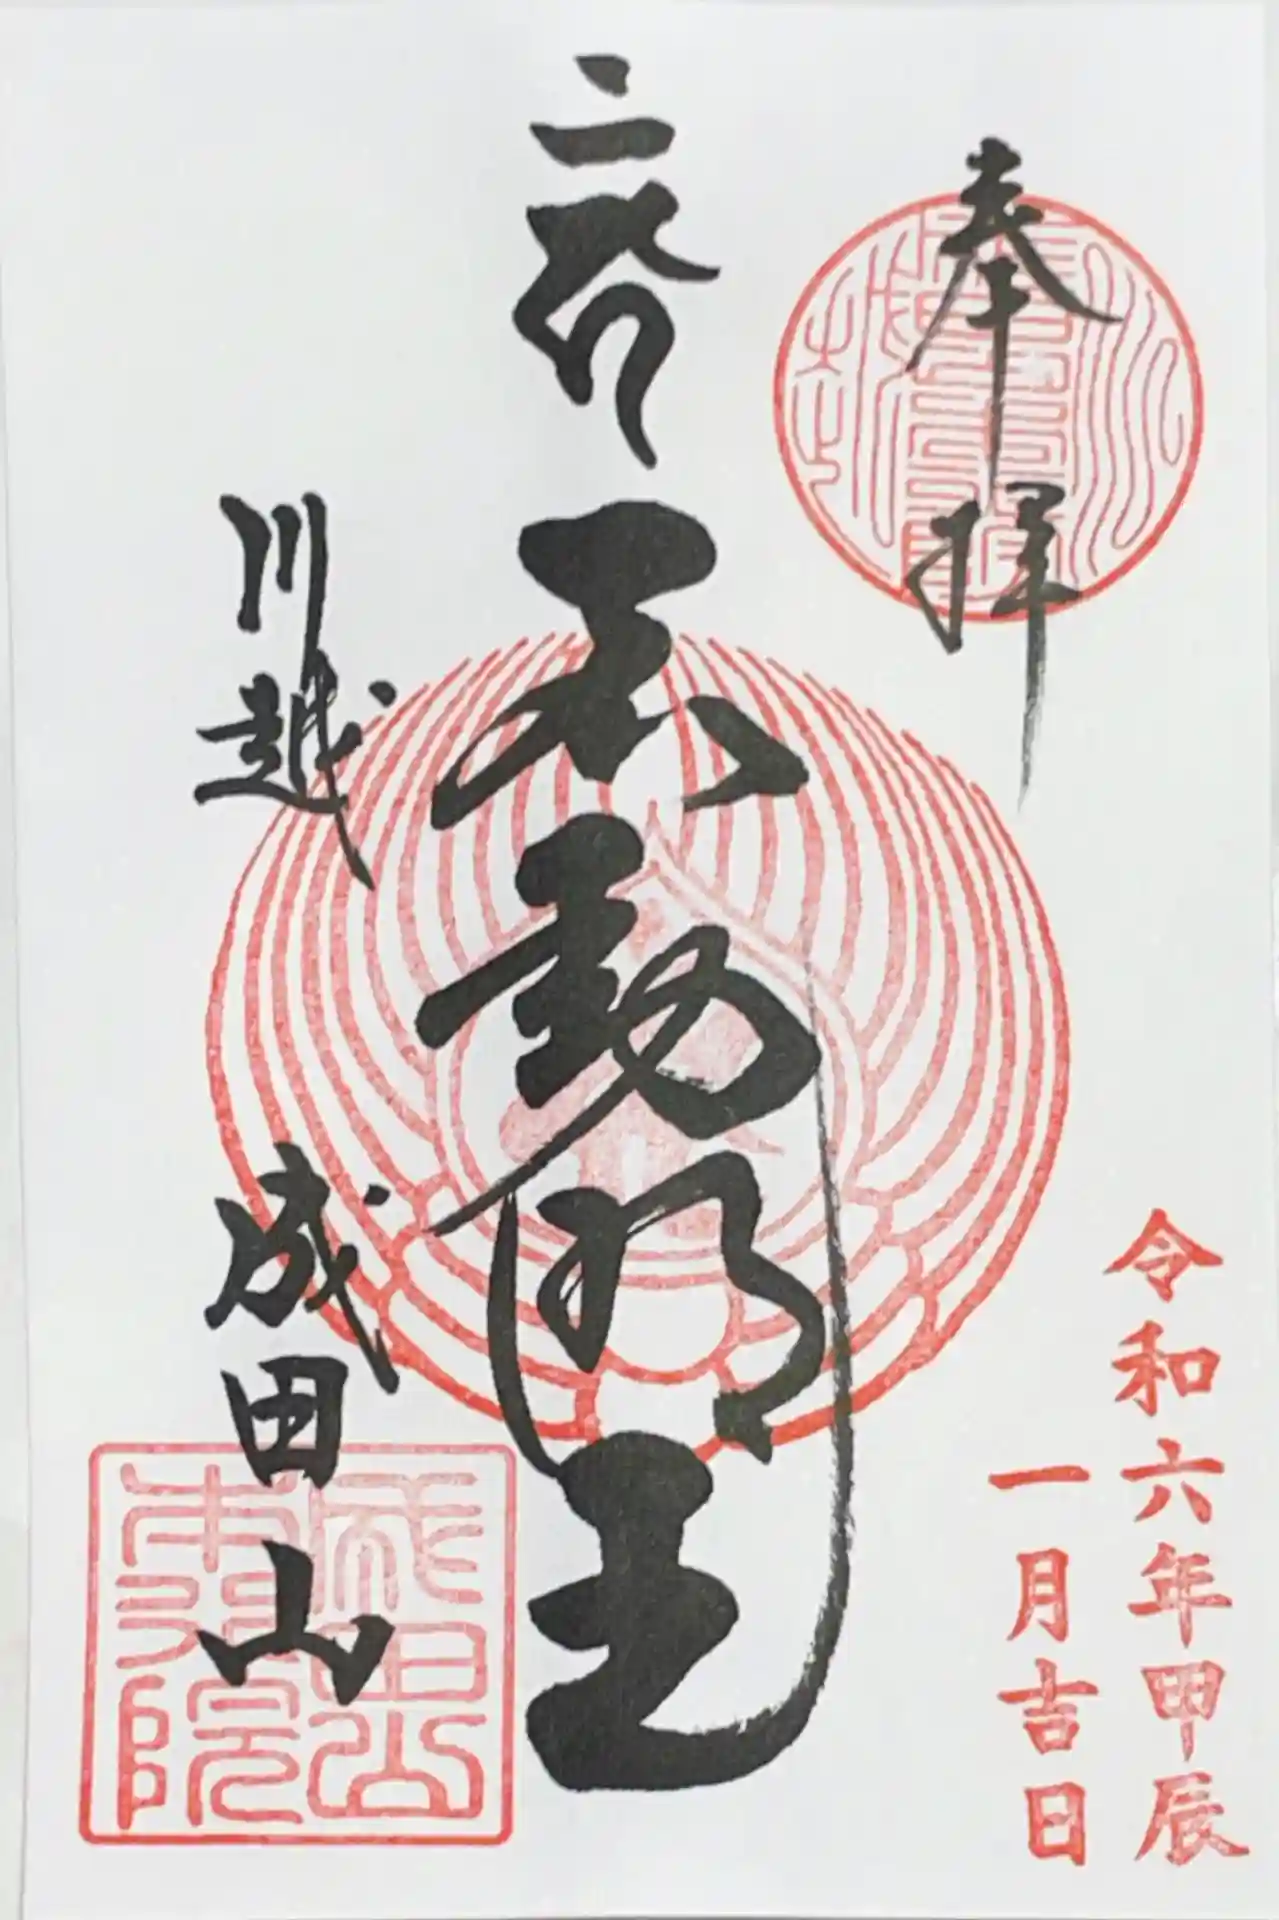 奉拝
令和六年甲辰
一月吉日
不動明王
川越 成田山
成田山
本行院